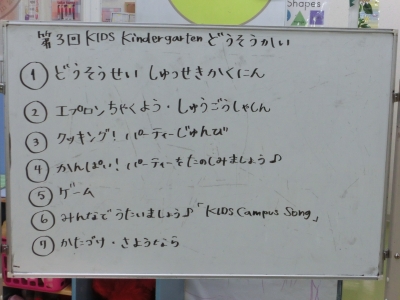 Shapes
第3回 KIDS Kindergarten どうそうかい
① どうそうせい しゅっせきかくにん
② エプロンちゃくよう・しゅうごうしゃしん
③ クッキング! パーティーじゅんび
④ かんぱい! パーティーをたのしみましょう♪
⑤ ゲーム
⑥ みんなでうたいましょう♪「KIDS Campus Song」
⑦ かたづけ・さようなら